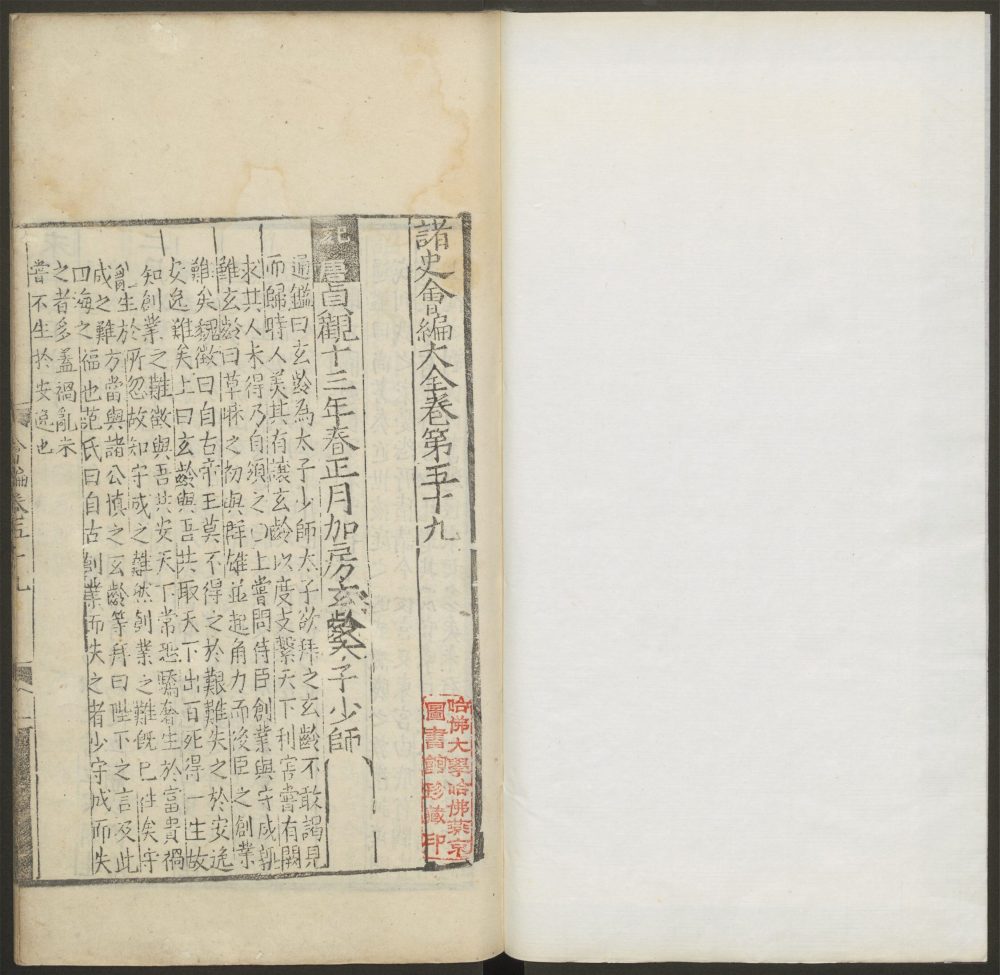 諸史會編大全卷第五十九
哈佛大學哈佛燕京
圖書館珍藏印
紀唐貞觀十三年春正月加房玄齡太子少師
通鑑曰玄齡為太子少師太子欲拜之玄齡不敢謁見
而歸時人美其有讓玄齡以度支繫天下利害嘗有闕
求其人未得乃自領之〇上嘗問侍臣創業與守成孰
難玄齡曰草昧之初與群雄並起角力而後臣之創業
難矣魏徵曰自古帝王莫不得之於艱難失之於安逸
安逸難矣上曰玄齡與吾共取天下出百死得一生故
知創業之難徵與吾共安天下常恐驕奢生於富貴禍
亂生於所忽故知守成之難然創業之難既已往矣守
成之難方當與諸公慎之玄齡等拜曰陛下之言及此
四海之福也范氏曰自古創業而失之者少守成而失
之者多蓋禍亂未
嘗不生於安逸也
會編卷五十九
一